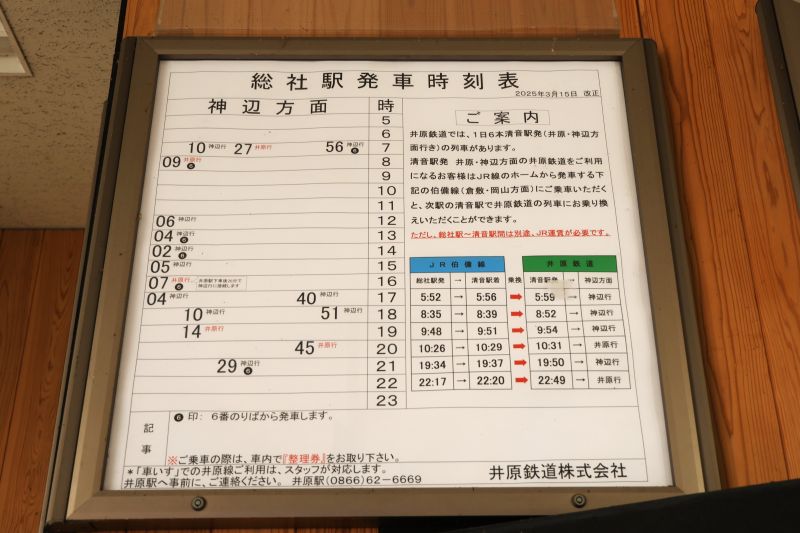 総社駅発車時刻表
2025年3月15日 改正
神辺方面 時
5
6
10 神辺行 27 井原行 56 神辺行 ❻ 7
09 井原行 ❻ 8
9
10
11
06 神辺行 12
04 神辺行 ❻ 13
02 神辺行 ❻ 14
05 神辺行 15
07 井原行 ❻ 16
04 神辺行 40 神辺行 17
10 神辺行 51 神辺行 18
14 井原行 19
45 井原行 20
29 神辺行 ❻ 21
22
23
ご案内
井原鉄道では、1日6本清音駅発（井原・神辺方
面行き）の列車があります。
清音駅発 井原・神辺方面の井原鉄道をご利用
になるお客様はJR線のホームから発車する下
記の伯備線（倉敷・岡山方面）にご乗車いただく
と、次駅の清音駅で井原鉄道の列車にお乗り換
えいただくことができます。
ただし、総社駅～清音駅間は別途、JR運賃が必要です。
JR伯備線 井原鉄道
総社駅発 → 清音駅着 乗換 清音駅発 → 神辺方面
5:52 → 5:56 ➡ 5:59 → 神辺行
8:35 → 8:39 ➡ 8:52 → 神辺行
9:48 → 9:51 ➡ 9:54 → 神辺行
10:26 → 10:29 ➡ 10:31 → 井原行
19:34 → 19:37 ➡ 19:50 → 神辺行
22:17 → 22:20 ➡ 22:49 → 井原行
記事
❻ 印: 6番のりばから発車します。
※ご乗車の際は、車内で『整理券』をお取り下さい。
＊「車いす」での井原線ご利用は、スタッフが対応します。
井原駅へ事前に、ご連絡ください。 井原駅(0866)62-6669
井原鉄道株式会社